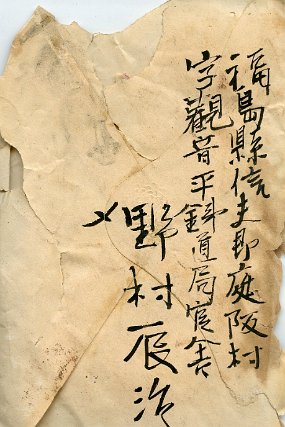 福島縣信夫郡庭阪村
字觀音平鉄道局官舎
野村辰治
〆